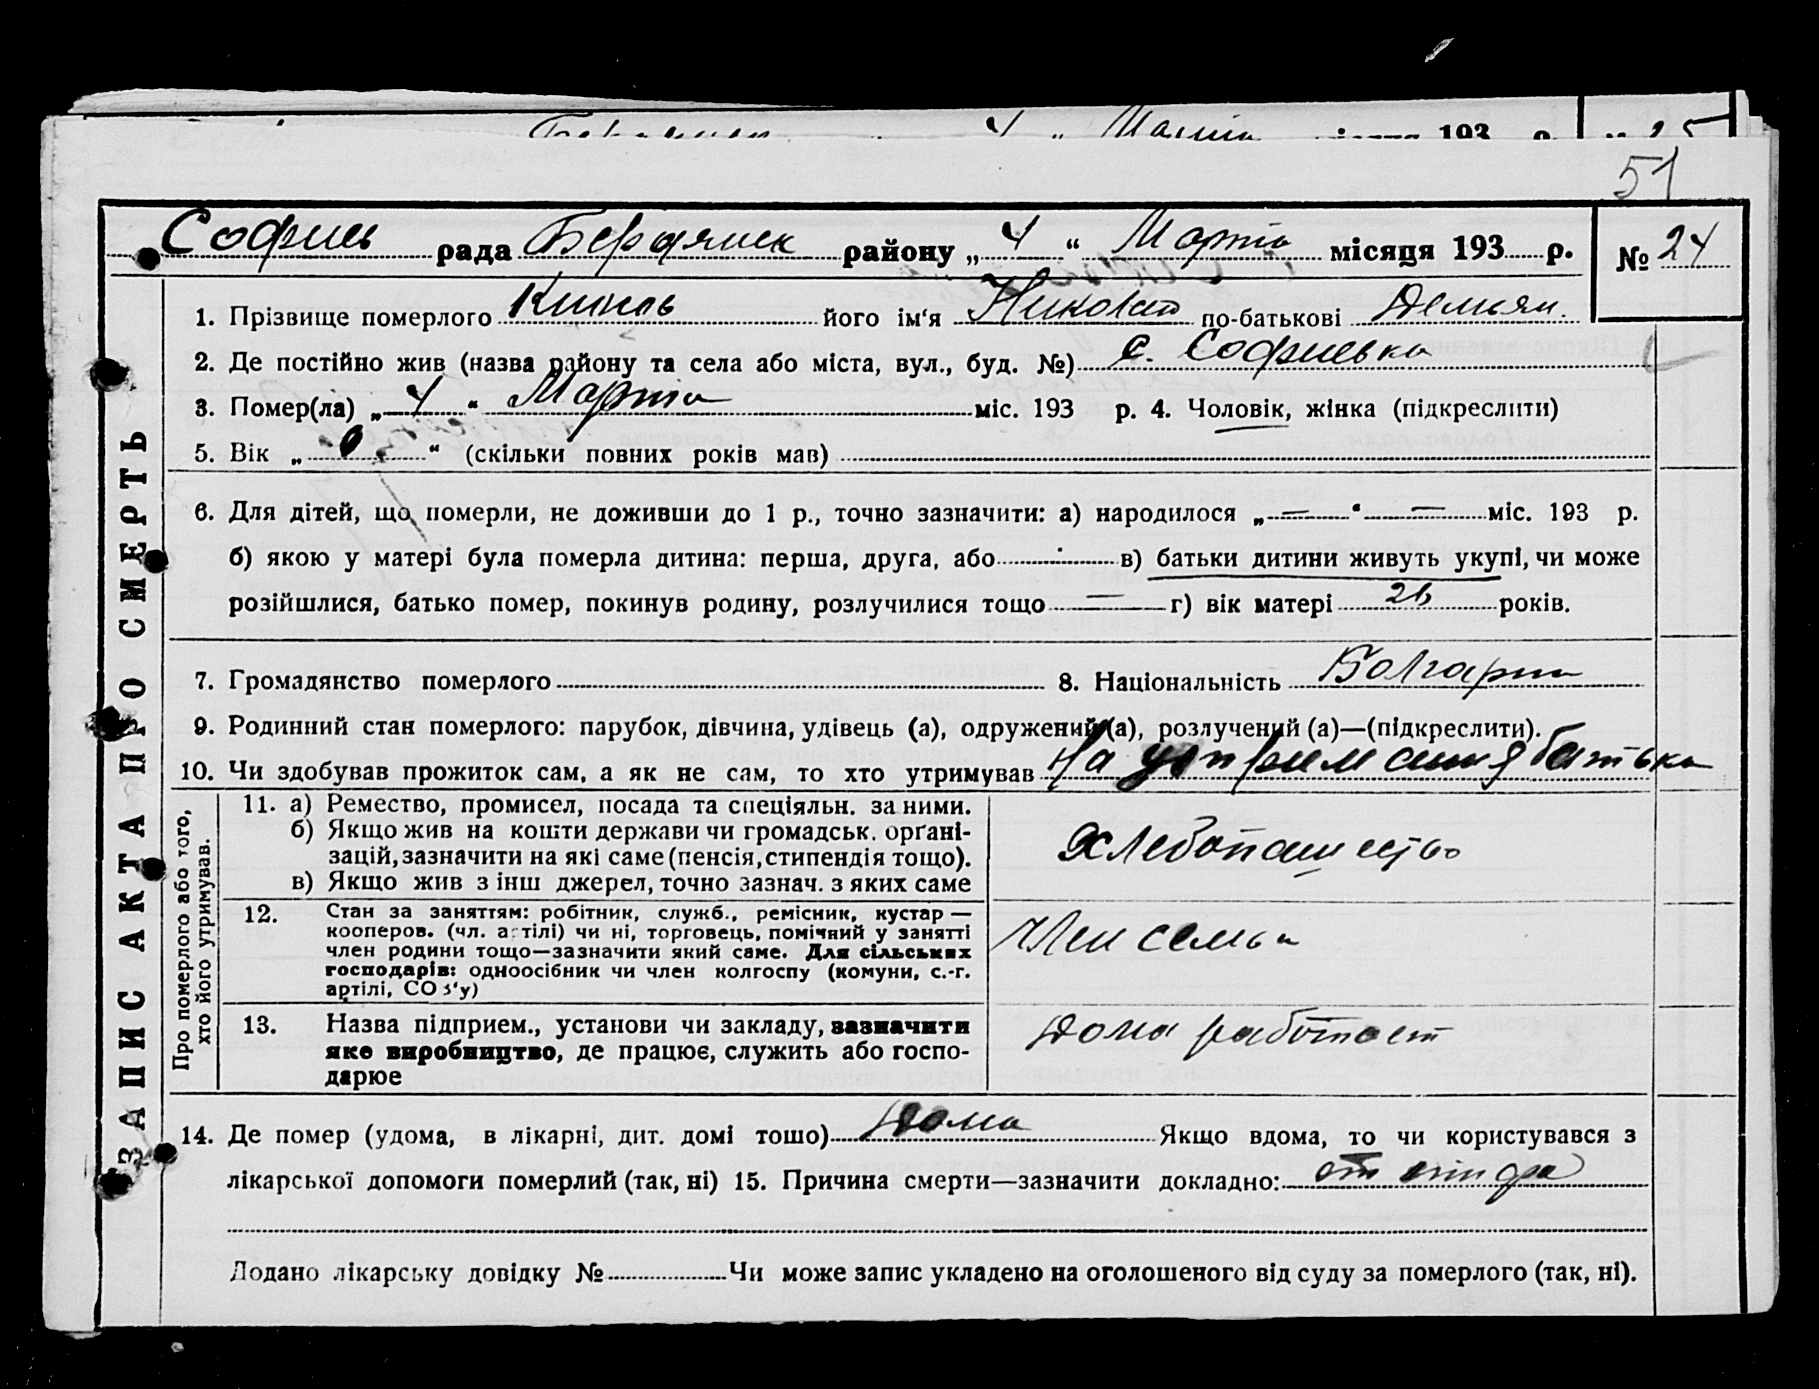 4 " Марта місяця 193 р. №
51
Софиев рада Бердянск району „ 4 “ Марта місяця 193 р. № 24
1. Прізвище померлого його ім'я Николай по-батькові Демьян.
2. Де постійно жив (назва району та села або міста, вул., буд. №) с. Софиевка
3. Помер(ла) „ 4 “ Марта міс. 193 р. 4. Чоловік, жінка (підкреслити)
5. Вік „ “ (скільки повних років мав)
6. Для дітей, що померли, не доживши до 1 р., точно зазначити: а) народилося „ — “ — міс. 193 р.
б) якою у матері була померла дитина: перша, друга, або в) батьки дитини живуть укупі, чи може
розійшлися, батько помер, покинув родину, розлучилися тощо — г) вік матері 26 років.
7. Громадянство померлого 8. Національність Болгарин
9. Родинний стан померлого: парубок, дівчина, удівець (а), одружений (а), розлучений (а)—(підкреслити).
10. Чи здобував прожиток сам, а як не сам, то хто утримував На батька
ЗАПИС АКТА ПРО СМЕРТЬ
Про померлого або того,
хто його утримував.
11. а) Ремество, промисел, посада та спеціяльн. за ними.
б) Якщо жив на кошти держави чи громадськ. орґані-
зацій, зазначити на які саме (пенсія, стипендія тощо).
в) Якщо жив з інш джерел, точно зазнач. з яких саме
Хлебопашество
12. Стан за заняттям: робітник, служб., ремісник, кустар —
кооперов. (чл. артілі) чи ні, торговець, помічний у занятті
член родини тощо—зазначити який саме. Для сільських
господарів: одноосібник чи член колгоспу (комуни, с.-г.
артілі, СОЗ'у)
Член семьи
13. Назва підприєм., установи чи закладу, зазначити
яке виробництво, де працює, служить або госпо-
дарює
Дома работает
14. Де помер (удома, в лікарні, дит. домі тошо) Дома Якщо вдома, то чи користувався з
лікарської допомоги померлий (так, ні) 15. Причина смерти—зазначити докладно: от тифа
Додано лікарську довідку № Чи може запис укладено на оголошеного від суду за померлого (так, ні).